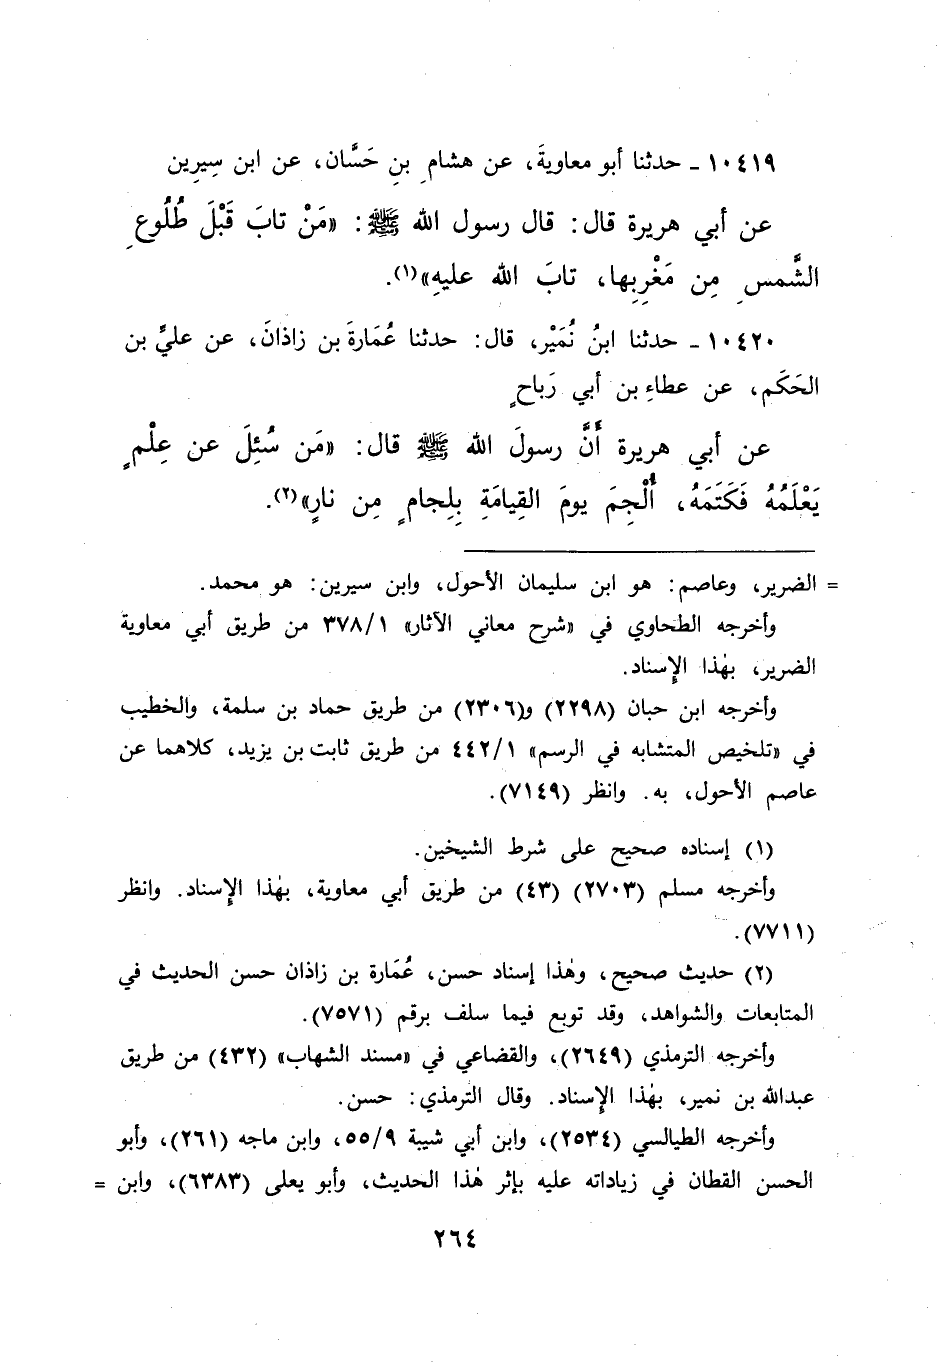 ١٠٤١٩ - حدثنا أبو معاويةَ، عن هشامِ بنِ حَسَّان، عن ابن سِيرِين
عن أبي هريرة قال: قال رسول الله ﷺ: «مَنْ تابَ قَبْلَ طُلُوعِ
الشَّمسِ مِن مَغْرِبِها، تابَ الله عليهِ»(١).
١٠٤٢٠ - حدثنا ابنُ نُمَيْر، قال: حدثنا عُمَارةَ بن زاذانَ، عن عليِّ بن
الحَكَم، عن عطاءِ بن أبي رَباحٍ
عن أبي هريرة أَنَّ رسولَ الله ﷺ قال: «مَن سُئِلَ عن عِلْمٍ
يَعْلَمُهُ فَكَتَمَهُ، أُلْجِمَ يومَ القِيامَةِ بِلِجامٍ مِن نارٍ»(٢).
= الضرير، وعاصم: هو ابن سليمان الأحول، وابن سيرين: هو محمد.
وأخرجه الطحاوي في «شرح معاني الآثار» ٣٧٨/١ من طريق أبي معاوية
الضرير، بهٰذا الإسناد.
وأخرجه ابن حبان (٢٢٩٨) و(٢٣٠٦) من طريق حماد بن سلمة، والخطيب
في «تلخيص المتشابه في الرسم» ٤٤٢/١ من طريق ثابت بن يزيد، كلاهما عن
عاصم الأحول، به. وانظر (٧١٤٩).
(١) إسناده صحيح على شرط الشيخين.
وأخرجه مسلم (٢٧٠٣) (٤٣) من طريق أبي معاوية، بهٰذا الإسناد. وانظر
(٧٧١١).
(٢) حديث صحيح، وهٰذا إسناد حسن، عُمَارة بن زاذان حسن الحديث في
المتابعات والشواهد، وقد توبع فيما سلف برقم (٧٥٧١).
وأخرجه الترمذي (٢٦٤٩)، والقضاعي في «مسند الشهاب» (٤٣٢) من طريق
عبدالله بن نمير، بهٰذا الإسناد. وقال الترمذي: حسن.
وأخرجه الطيالسي (٢٥٣٤)، وابن أبي شيبة ٥٥/٩، وابن ماجه (٢٦١)، وأبو
الحسن القطان في زياداته عليه بإثر هٰذا الحديث، وأبو يعلى (٦٣٨٣)، وابن =
٢٦٤